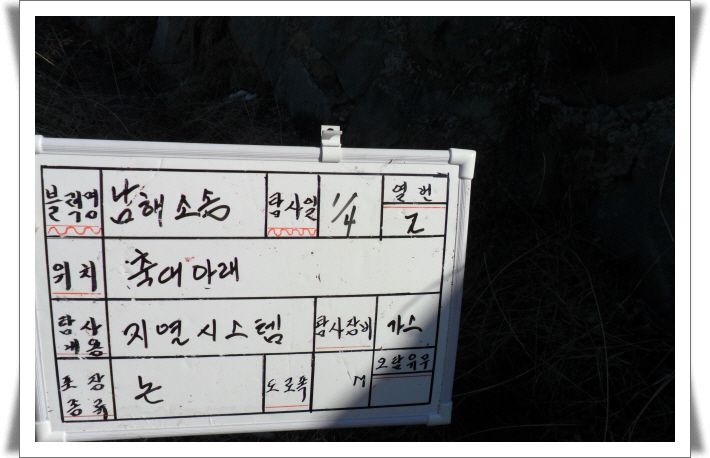 블럭명 남해소송 탐사일 1/4 열번 2
위치 축어아래
탐사내용 지열시스템 탐사장비 가스
포장종류 논 도로폭 M 오탐유무